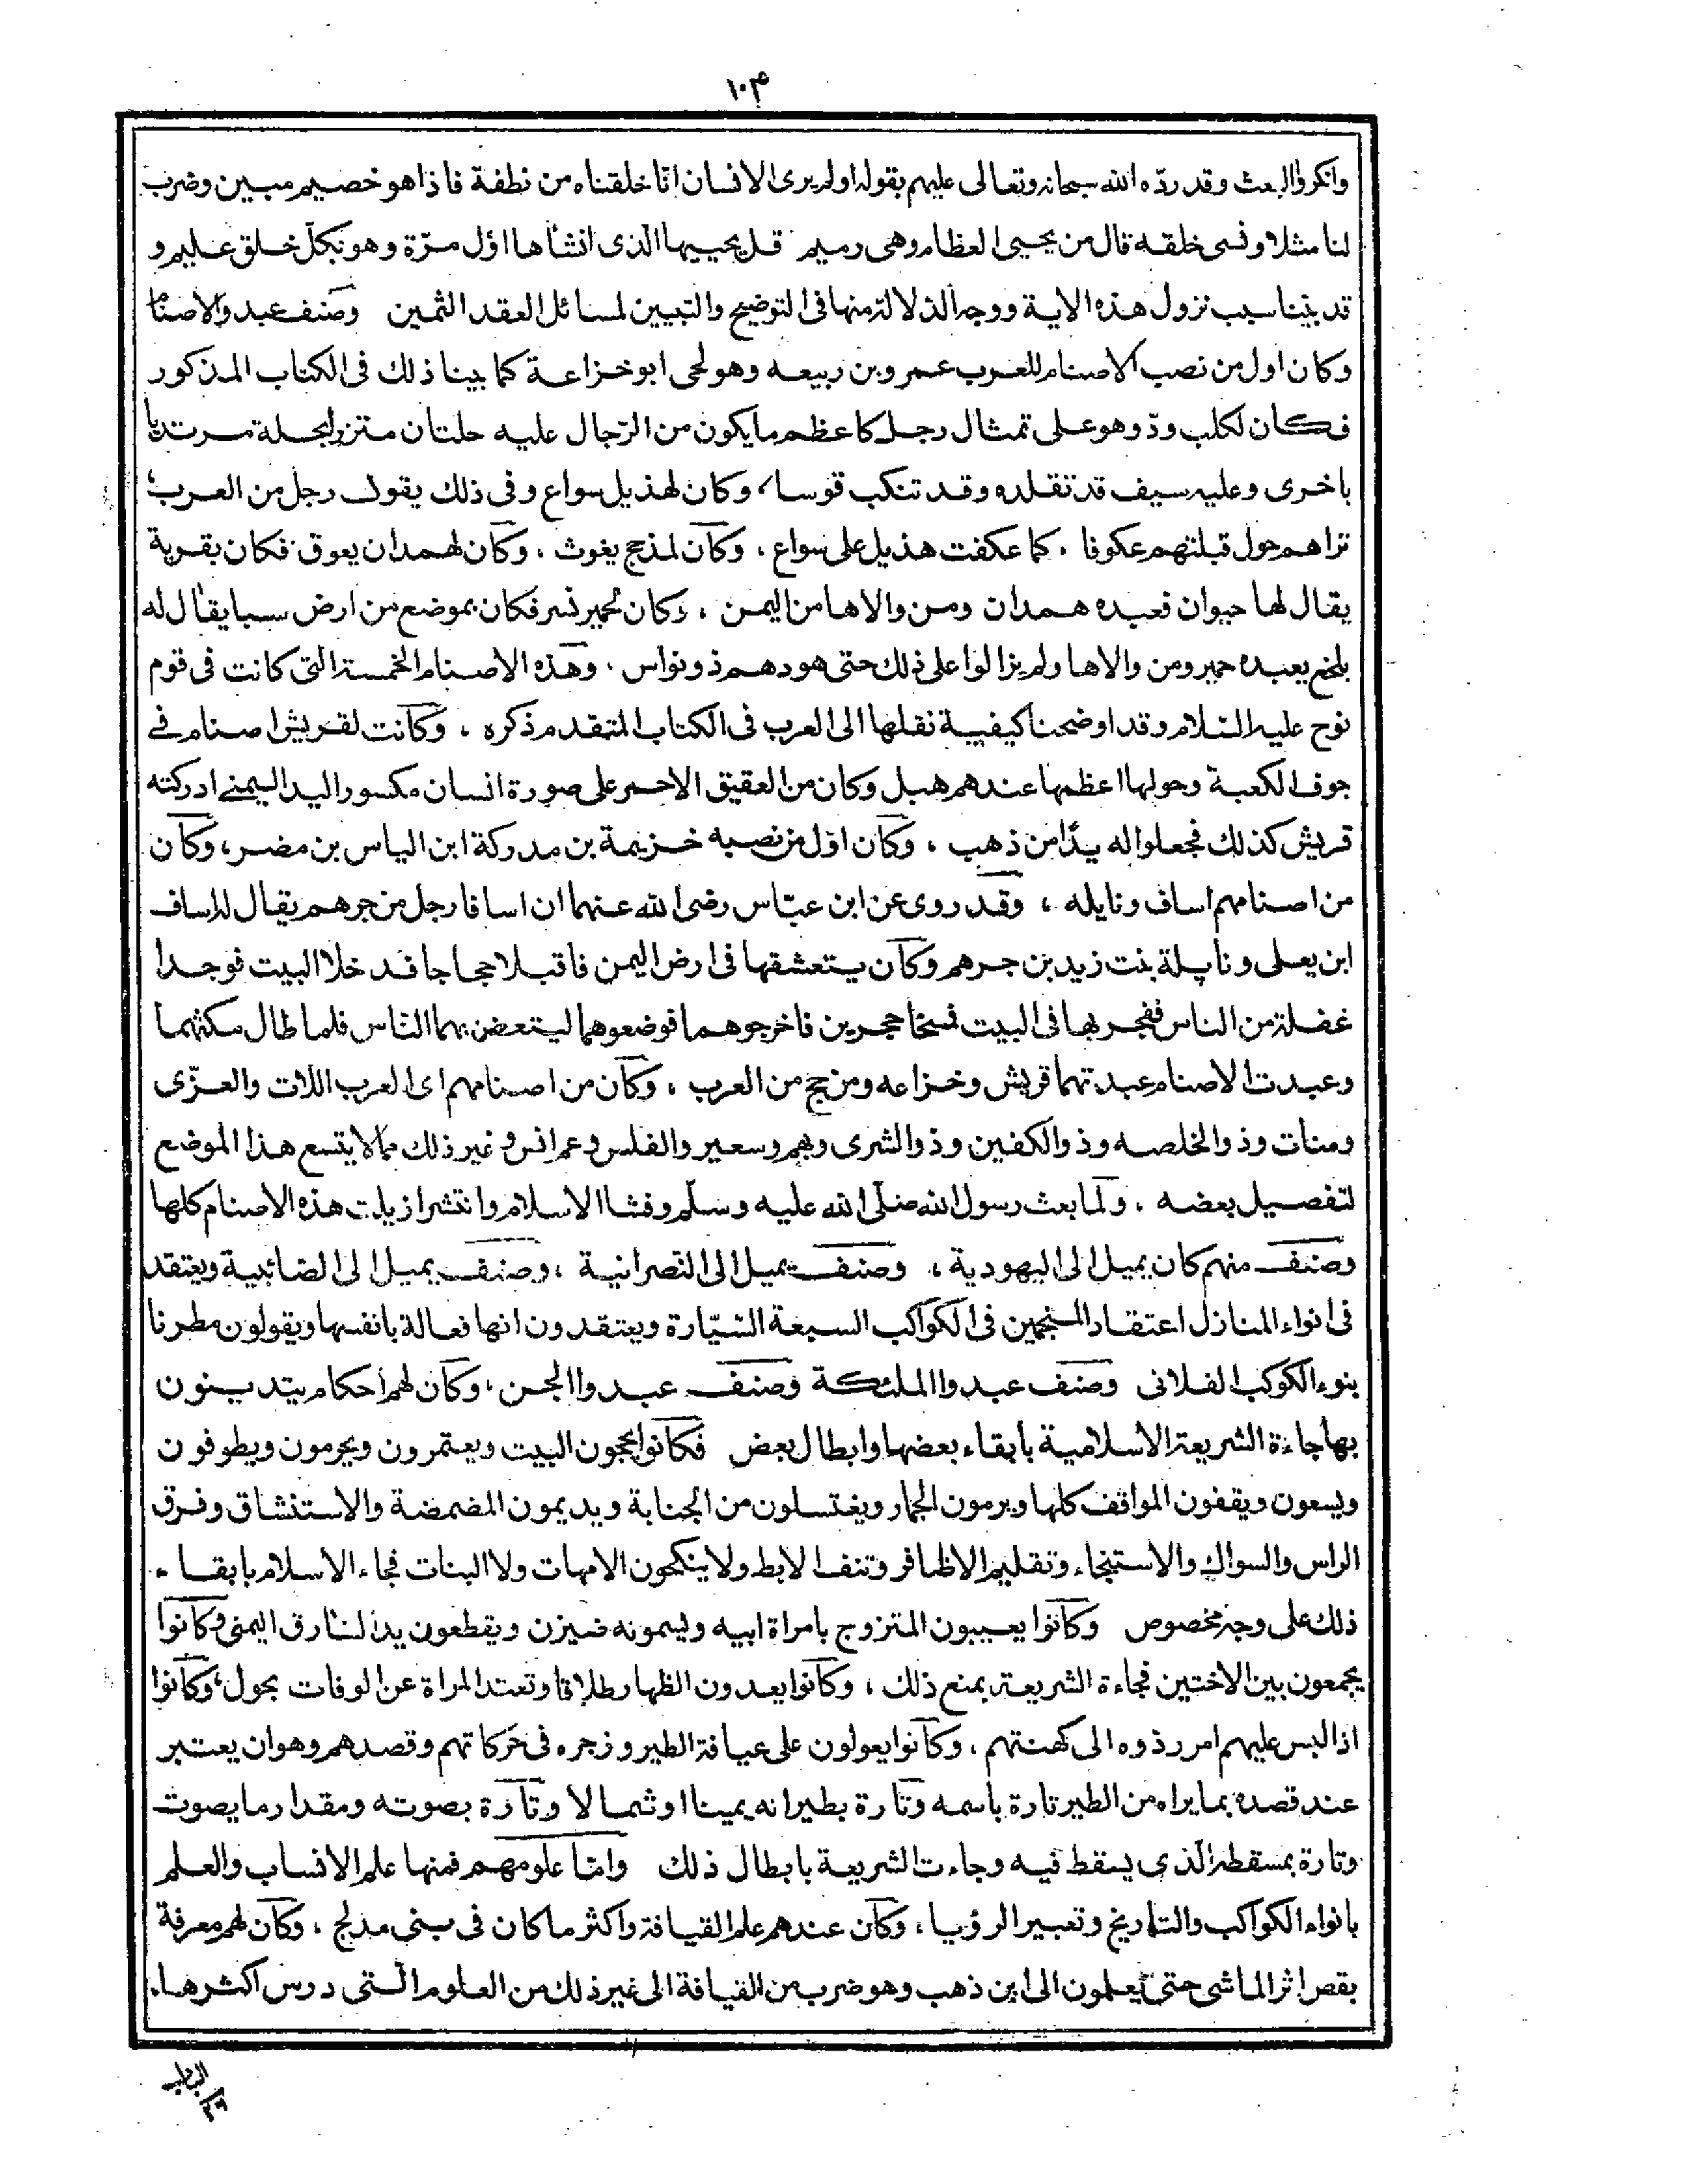 ١٠۴
وانكروا البعث وقد ردّه الله سبحانه وتعالى عليهم بقوله اولم يرى الانسان انّا خلقناه من نطفة فاذا هو خصيم مبين وضرب
لنا مثلا ونسى خلقه قال من يحيى العظام وهى رميم قل يحييها الّذى انشأها اوّل مرّة وهو بكلّ خلق عليم و
قد بيّنا سبب نزول هذه الاية ووجه الدّلالة منها فى التوضيح والتبيين لمسائل العقد الثمين وصنف عبدوالاصنام
وكان اول من نصب الاصنام للعرب عمرو بن ربيعه وهو لحى ابو خزاعة كما بينا ذلك فى الكتاب المذكور
فكان لكلب ودّ وهو على تمثال رجل كاعظم ما يكون من الرّجال عليه حلتان متزر بحلة مرتديا
باخرى وعليه سيف قد تقلده وقد تنكب قوسا، وكان لهذيل سواع وفى ذلك يقول رجل من العرب؛
تراهم حول قبلتهم عكوفا ، كما عكفت هذيل على سواع ، وكان لمذحج يغوث ، وكان لهمدان يعوق فكان بقرية
يقال لها حيوان فعبده همدان ومن والاها من اليمن ، وكان لحمير نسر فكان بموضع من ارض سبا يقال له
بلخع يعبده حمير ومن والاها ولم يزالوا على ذلك حتى هودهم ذو نواس ، وهذه الاصنام الخمسة التى كانت فى قوم
نوح عليه السّلام وقد اوضحنا كيفية نقلها الى العرب فى الكتاب المتقدم ذكره ، وكانت لقريش اصنام فے
جوف الكعبة وحولها اعظمها عندهم هبل وكان من العقيق الاحمر على صورة انسان مكسور اليد اليمنے ادركته
قريش كذلك فجعلوا له يدًا من ذهب ، وكان اوّل من نصبه خزيمة بن مدركة ابن الياس بن مضر، وكان
من اصنامهم اساف ونايله ، وقد روى عن ابن عبّاس رضى الله عنهما ان اسافا رجل من جرهم يقال له اساف
ابن يعلى ونايلة بنت زيد بن جرهم وكان يتعشقها فى ارض اليمن فاقبلا حجاجا فدخلا البيت فوجدا
غفلة من الناس ففجر بها فى البيت فمسخا حجرين فاخرجوهما فوضعوهما ليتعض بهما النّاس فلما طال مكثهما
وعبدت الاصنام عبدتهما قريش وخزاعه ومن حج من العرب ، وكان من اصنامهم اى العرب اللات والعزّى
ومنات وذو الخلصه وذو الكفين وذو الشرى ونهم وسعير والفلس وعمرانس وغير ذلك مما لا يتسع هذا الموضع
لتفصيل بعضه ، ولما بعث رسول الله صلّى الله عليه وسلّم وفشا الاسلام وانتشر ازيلت هذه الاصنام كلها
وصنف منهم كان يميل الى اليهودية ، وصنف يميل الى النّصرانية ، وصنف يميل الى الصّائبية ويعتقد
فى انواء المنازل اعتقاد المنجمين فى الكواكب السبعة السّيّارة ويعتقدون انها فعالة بانفسها ويقولون مطرنا
بنوء الكوكب الفلانى وصنف عبدوا الملئكة وصنف عبدوا الجن ، وكان لهم احكام يتدينون
بها جاءة الشريعة الاسلامية بأبقاء بعضها وابطال بعض فكانوا يحجون البيت ويعتمرون ويحرمون ويطوفون
ويسعون ويقفون المواقف كلها ويرمون الجمار ويغتسلون من الجنابة ويديمون المضمضة والاستنشاق وفرق
الراس والسواك والاستنجاء وتقليم الاظافر وتنف الابط ولا ينكحون الامهات ولا البنات فجاء الاسلام بابقاء
ذلك على وجه مخصوص وكانوا يعيبون المتزوج بامراة ابيه ويسمونه ضيزن ويقطعون يد السّارق اليمنى وكانوا
يجمعون بين الاختين فجاءة الشريعة بمنع ذلك ، وكانوا يعدون الظهار طلاقا وتعتد المراة عن الوفات بحول، وكانوا
اذا البس عليهم امر ردّوه الى كهنتهم ، وكانوا يعولون على عيافة الطير وزجره فى حركاتهم وقصدهم وهو ان يعتبر
عند قصده بما يراه من الطير تارة باسمه وتارة بطيرانه يمينا او شمالا وتارة بصوته ومقدار ما يصوت
وتارة بمسقطه الّذى يسقط فيه وجاءت الشريعة بابطال ذلك وامّا علومهم فمنها علم الانساب والعلم
بانواء الكواكب والتاريخ وتعبير الرؤيا ، وكان عندهم علم القيافة واكثر ما كان فى بنى مدلج ، وكان لهم معرفة
بقص اثر الماشى حتى يعلمون الى اين ذهب وهو ضرب من القيافة الى غير ذلك من العلوم الّتى درس اكثرها.